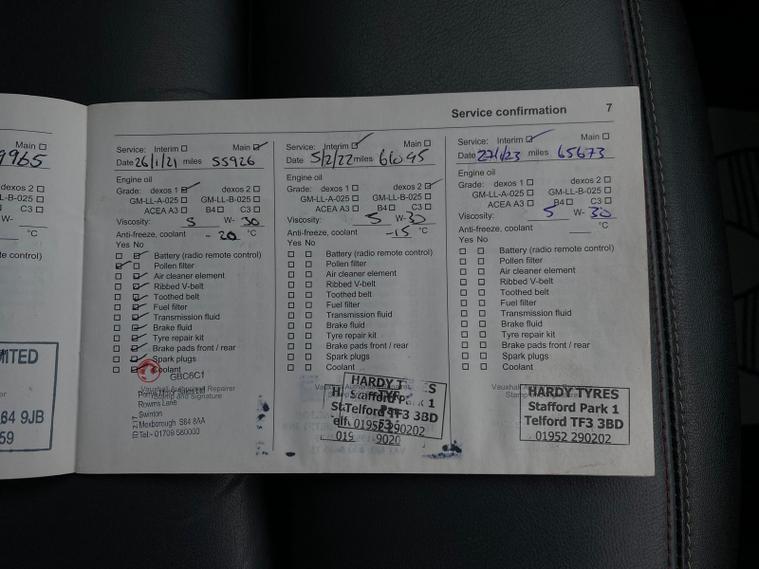 Service confirmation 7
Main
9965
dexos 2
GM-LL-B-025
C3
W-
°C
te control)
MITED
64 9JB
59
Service: Interim Main
Date 26/1/21 miles 55926
Engine oil
Grade: dexos 1 dexos 2
GM-LL-A-025 GM-LL-B-025
ACEA A3 B4 C3
Viscosity: 5 W- 30
Anti-freeze, coolant - 20 °C
Yes No
Battery (radio remote control)
Pollen filter
Air cleaner element
Ribbed V-belt
Toothed belt
Fuel filter
Transmission fluid
Brake fluid
Tyre repair kit
Brake pads front / rear
Spark plugs
Coolant
GBC6C1
Vauxhall Authorised Repairer
Stamp and Signature
Rowms Lane
Swinton
Mexborough S64 8AA
Tel:- 01709 580000
Service: Interim Main
Date 5/2/22 miles
Engine oil
Grade: dexos 1 dexos 2
GM-LL-A-025 GM-LL-B-025
ACEA A3 B4 C3
Viscosity: 5 W-30
Anti-freeze, coolant -15 °C
Yes No
Battery (radio remote control)
Pollen filter
Air cleaner element
Ribbed V-belt
Toothed belt
Fuel filter
Transmission fluid
Brake fluid
Tyre repair kit
Brake pads front / rear
Spark plugs
Coolant
HARDY
Stafford
Telford TF3 3BD
01952 290202
Service: Interim Main
Date 27/1/23 miles 65673
Engine oil
Grade: dexos 1 dexos 2
GM-LL-A-025 GM-LL-B-025
ACEA A3 B4 C3
Viscosity: 5 W- 30
Anti-freeze, coolant °C
Yes No
Battery (radio remote control)
Pollen filter
Air cleaner element
Ribbed V-belt
Toothed belt
Fuel filter
Transmission fluid
Brake fluid
Tyre repair kit
Brake pads front / rear
Spark plugs
Coolant
HARDY TYRES
Stafford Park 1
Telford TF3 3BD
01952 290202